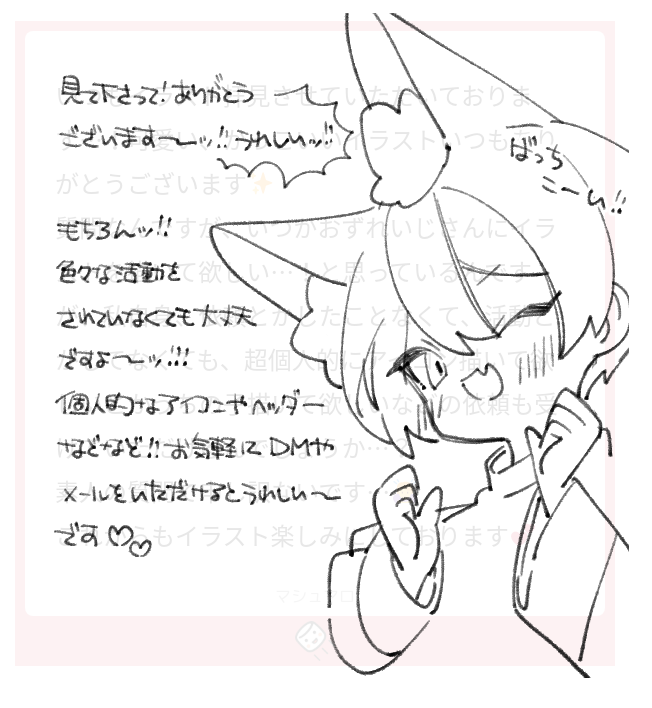 見て下さって!ありがとう
ございます〜ーッ!!うれしいッ!!
ばっち
こーい!!
もちろんッ!!
色々な活動を
されていなくても大丈夫
ですよ〜ーッ!!!
個人的なアイコンやヘッダー
などなど!!お気軽にDMや
メールをいただけるとうれしい〜
です♡♡
見させていただいております
イラストいつもあり
がとうございます✨
いつかおずれいじさんにイラ
て欲しい…!と思っている
したことなくて、活動
も、超個人的に
イラスト楽しみにしております
マシュマロ